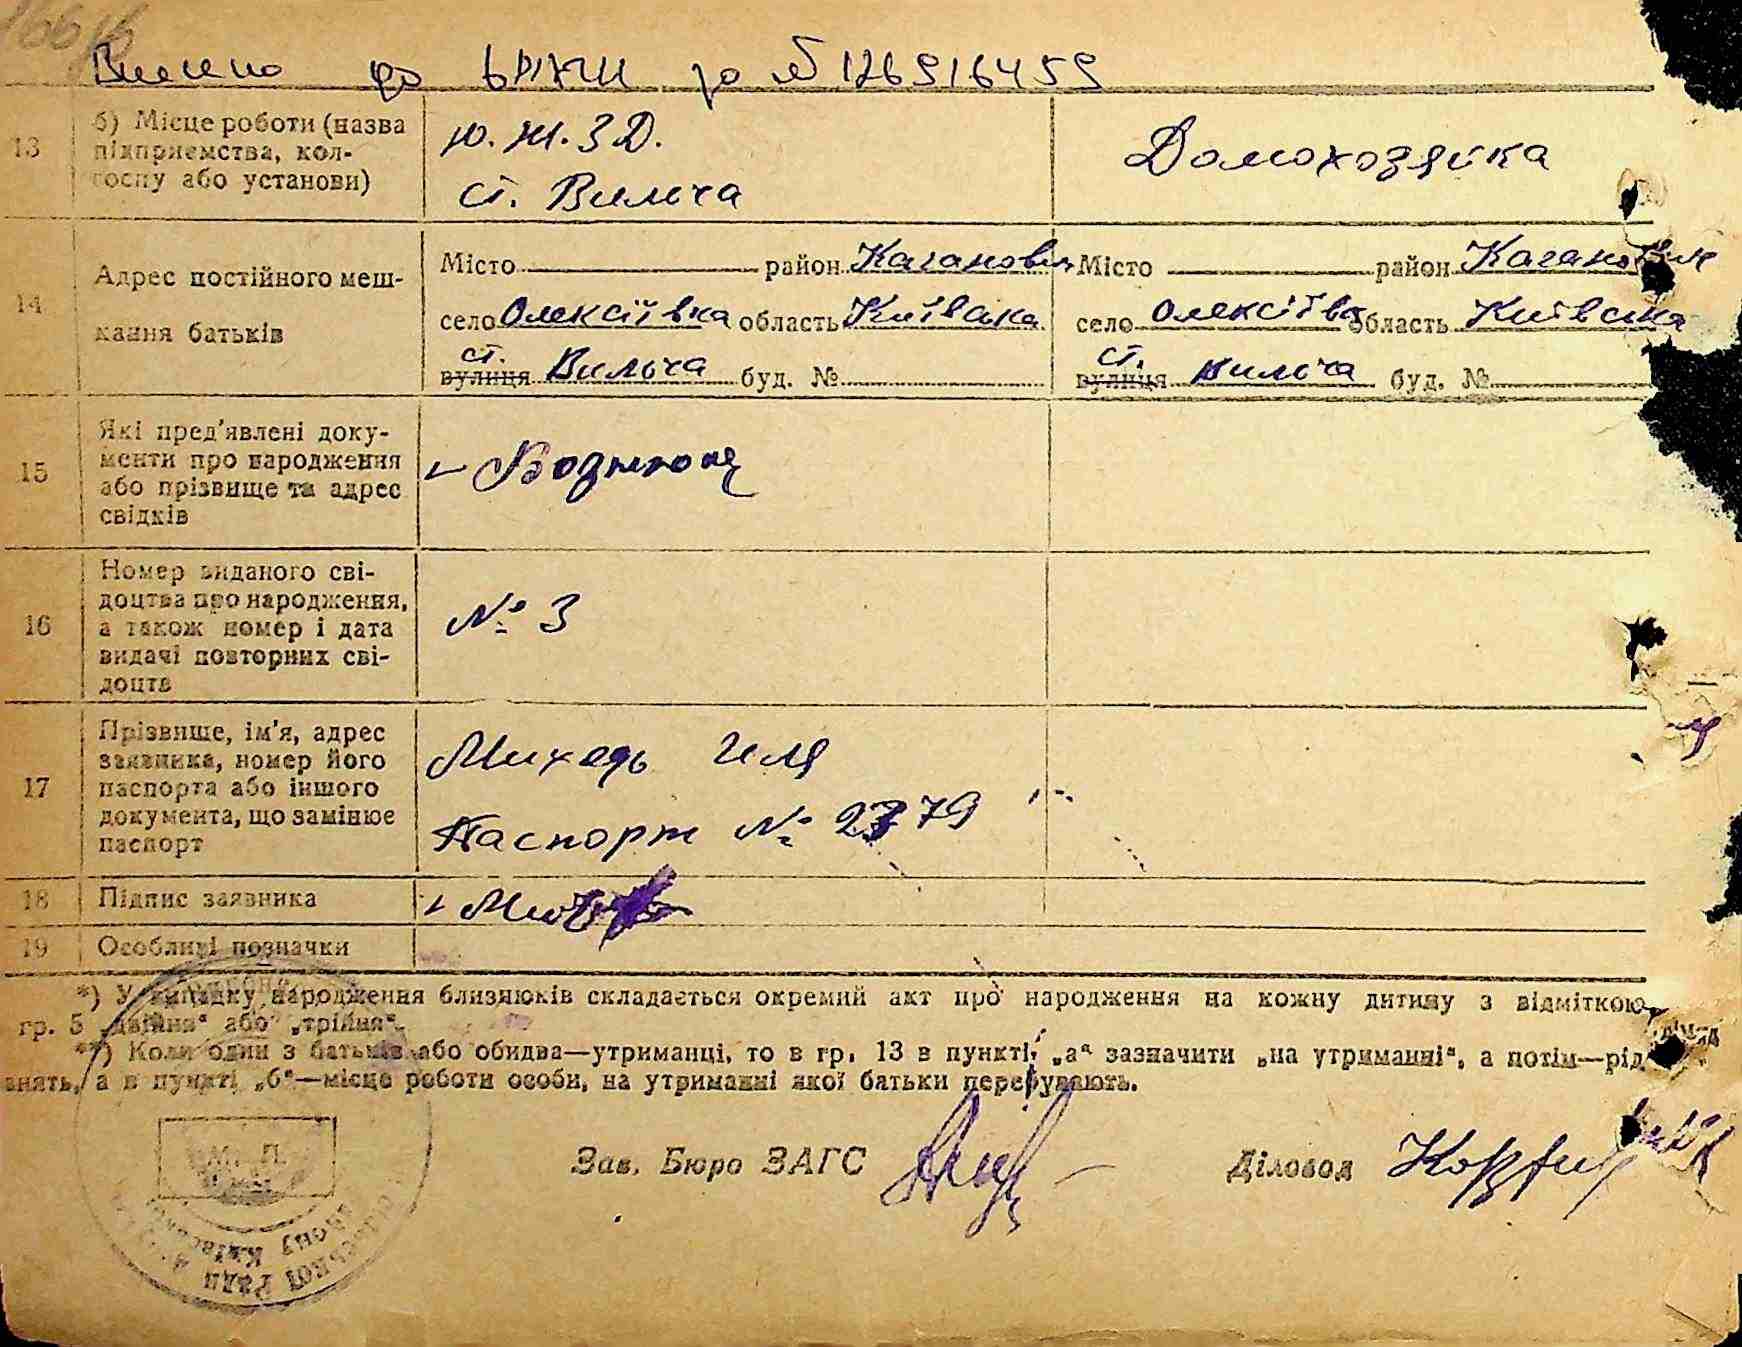 Внесено до ВРАЧИ за № 126916459
13
б) Місце роботи (назва
підприємства, кол-
госпу або установи)
Ю. Ж. З Д.
ст. Вильча
Домохозяйка
14
Адрес постійного меш-
кання батьків
Місто район Каганович
село Олексіївка область Київська
ст.
вулиця Вильча буд. №
Місто район Каганович
село Олексіївка область Київська
ст.
вулиця Вильча буд. №
15
Які пред'явлені доку-
менти про народження
або прізвище та адрес
свідків
16
Номер виданого сві-
доцтва про народження,
а також номер і дата
видачі повторних сві-
доцтв
№ 3
17
Прізвище, ім'я, адрес
заявника, номер його
паспорта або іншого
документа, що замінює
паспорт
Михедь Иля
Паспорт № 2779
18
Підпис заявника
19
Особливі позначки
*) У випадку народження близнюків складається окремий акт про народження на кожну дитину з відміткою
гр. 5 „двійня“ або „трійня“.
**) Коли один з батьків або обидва—утриманці, то в гр. 13 в пункті „а“ зазначити „на утриманні“, а потім—рід
занять, а в пункті „б“—місце роботи особи, на утриманні якої батьки перебувають.
Зав. Бюро ЗАГС
Діловод